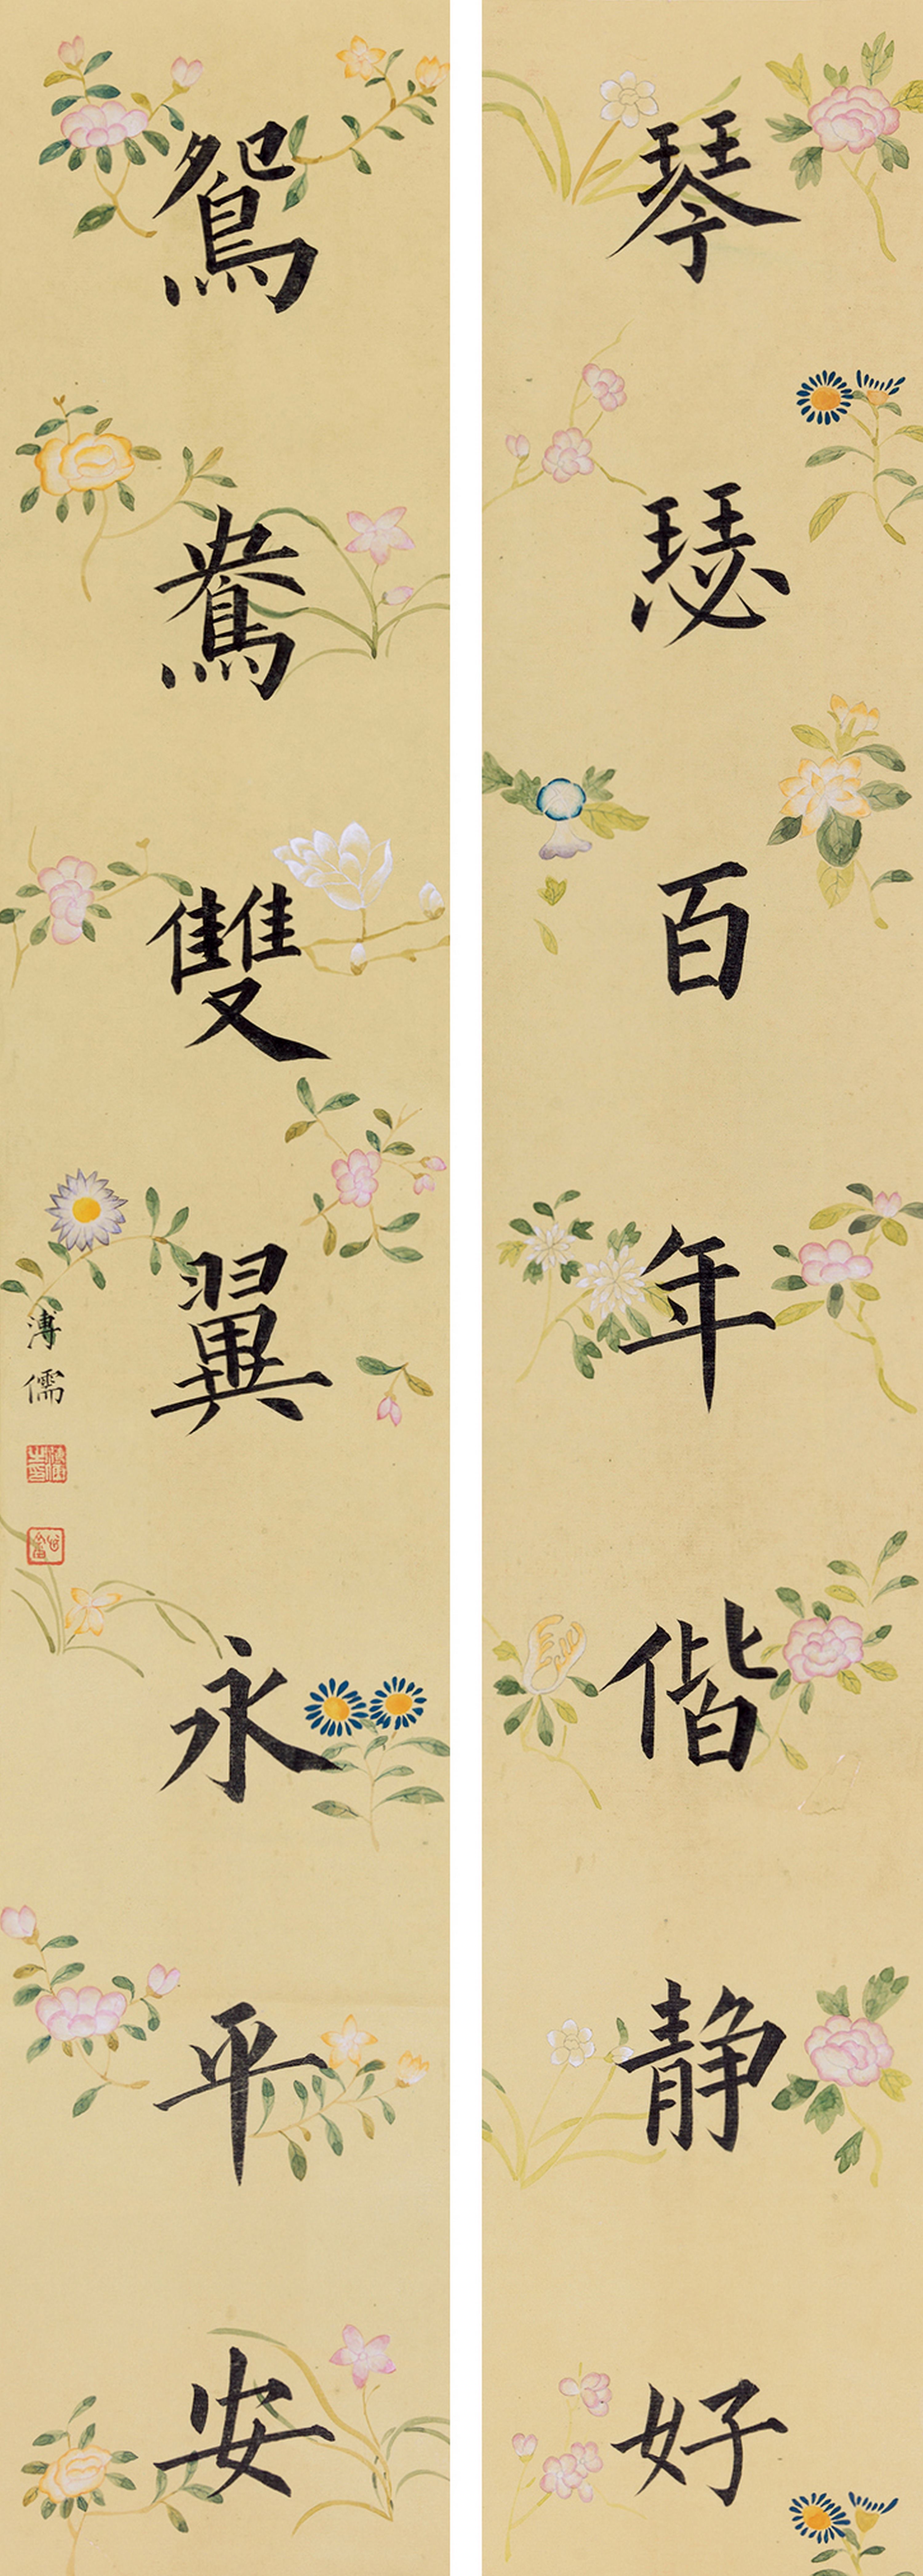 琴瑟百年偕静好
鴛鴦雙翼永平安
溥儒